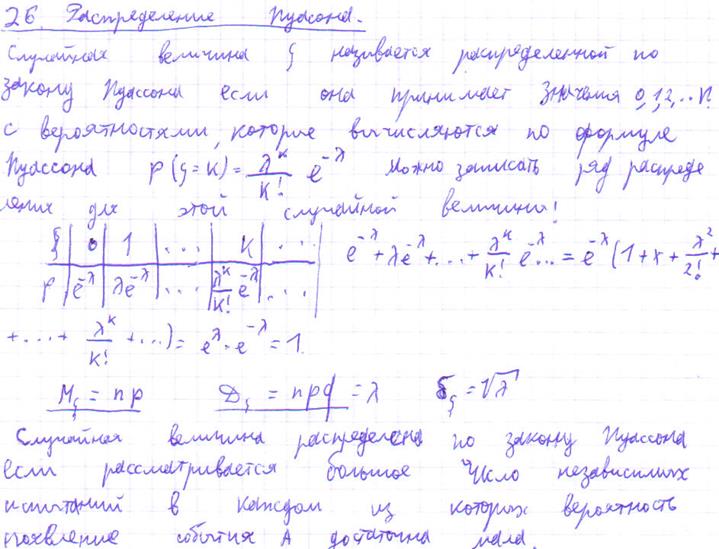 26. Распределение Пуасона.
Случайная величина ξ называется распределенной по
закону Пуассона если она принимает значения 0,1,2,...n
с вероятностями, которые вычисляются по формуле
Пуассона P(ξ=k) = λ^k/k! e^-λ Можно записать ряд распреде
ления для этой случайной величины!
ξ | 0 | 1 | ... | k | ... e^-λ + λe^-λ + ... + λ^k/k! e^-λ... = e^-λ (1 + λ + λ^2/2! +
P | e^-λ | λe^-λ | ... | λ^k/k! e^-λ | ...
+ ... + λ^k/k! + ...) = e^λ · e^-λ = 1.
Mξ = np Dξ = npq = λ δξ = √λ
Случайная величина распределена по закону Пуассона
если рассматривается большое число независимых
испытаний в каждом из которых вероятность
появление события A достаточна мала.